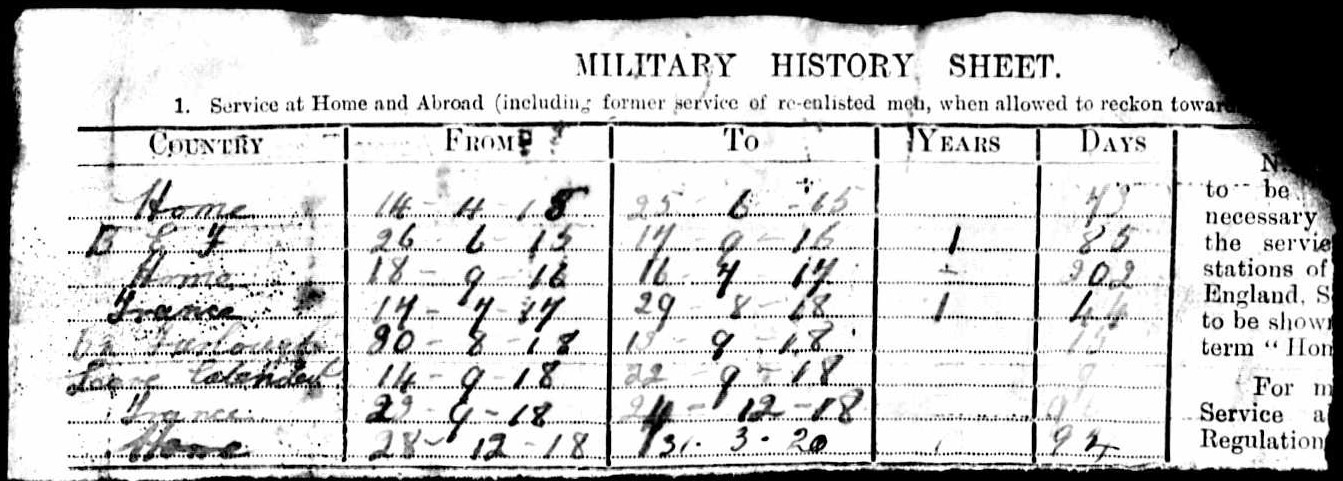 MILITARY HISTORY SHEET.
1. Service at Home and Abroad (including former service of re-enlisted men, when allowed to reckon towar
COUNTRY FROM TO YEARS DAYS
Home 14 - 4 - 15 25 - 6 - 15 73
B E F 26 - 6 - 15 17 - 9 - 16 1 85
Home 18 - 9 - 16 16 - 7 - 17 - 202
France 17 - 7 - 17 29 - 8 - 18 1 44
Furlough 30 - 8 - 18 13 - 9 - 18
Leave Extended 14 - 9 - 18 22 - 9 - 18 9
France 23 - 9 - 18 12 - 18
Home 28 - 12 - 18 31. 3. 20
N
to be
necessary
the servic
stations of
England, S
to be shown
term "Hom
For m
Service a
Regulation